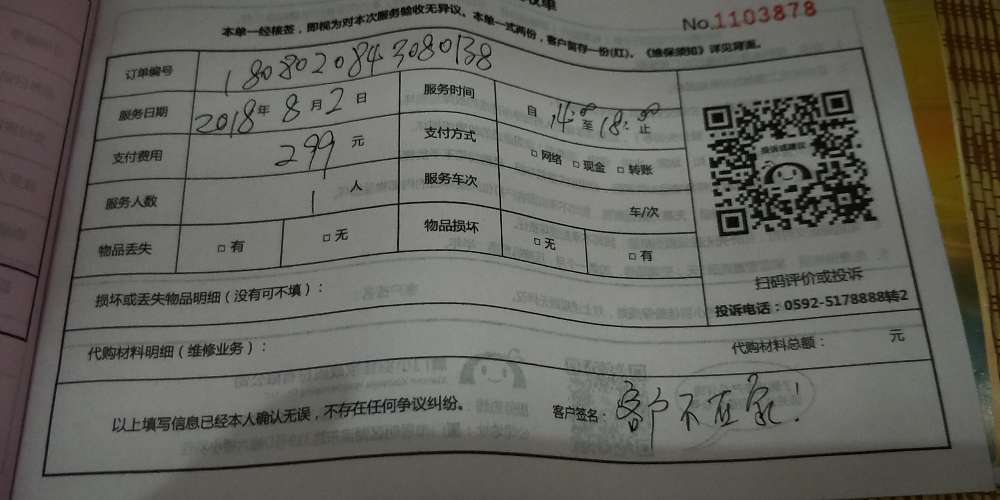 No.1103878
本单一经核签，即视为对本次服务验收无异议。本单一式两份，客户留存一份(红)。《维保须知》详见背面。
订单编号 1808020843080138
服务日期 2018年8月2日 服务时间 自14:00至18:00止
支付费用 299元 支付方式 □网络 □现金 □转账
服务人数 1人 服务车次 车/次
物品丢失 □有 □无 物品损坏 □无 □有
投诉或建议
扫码评价或投诉
投诉电话：0592-5178888转2
损坏或丢失物品明细（没有可不填）：
代购材料明细（维修业务）： 代购材料总额： 元
以上填写信息已经本人确认无误，不存在任何争议纠纷。 客户签名：客户不在家！